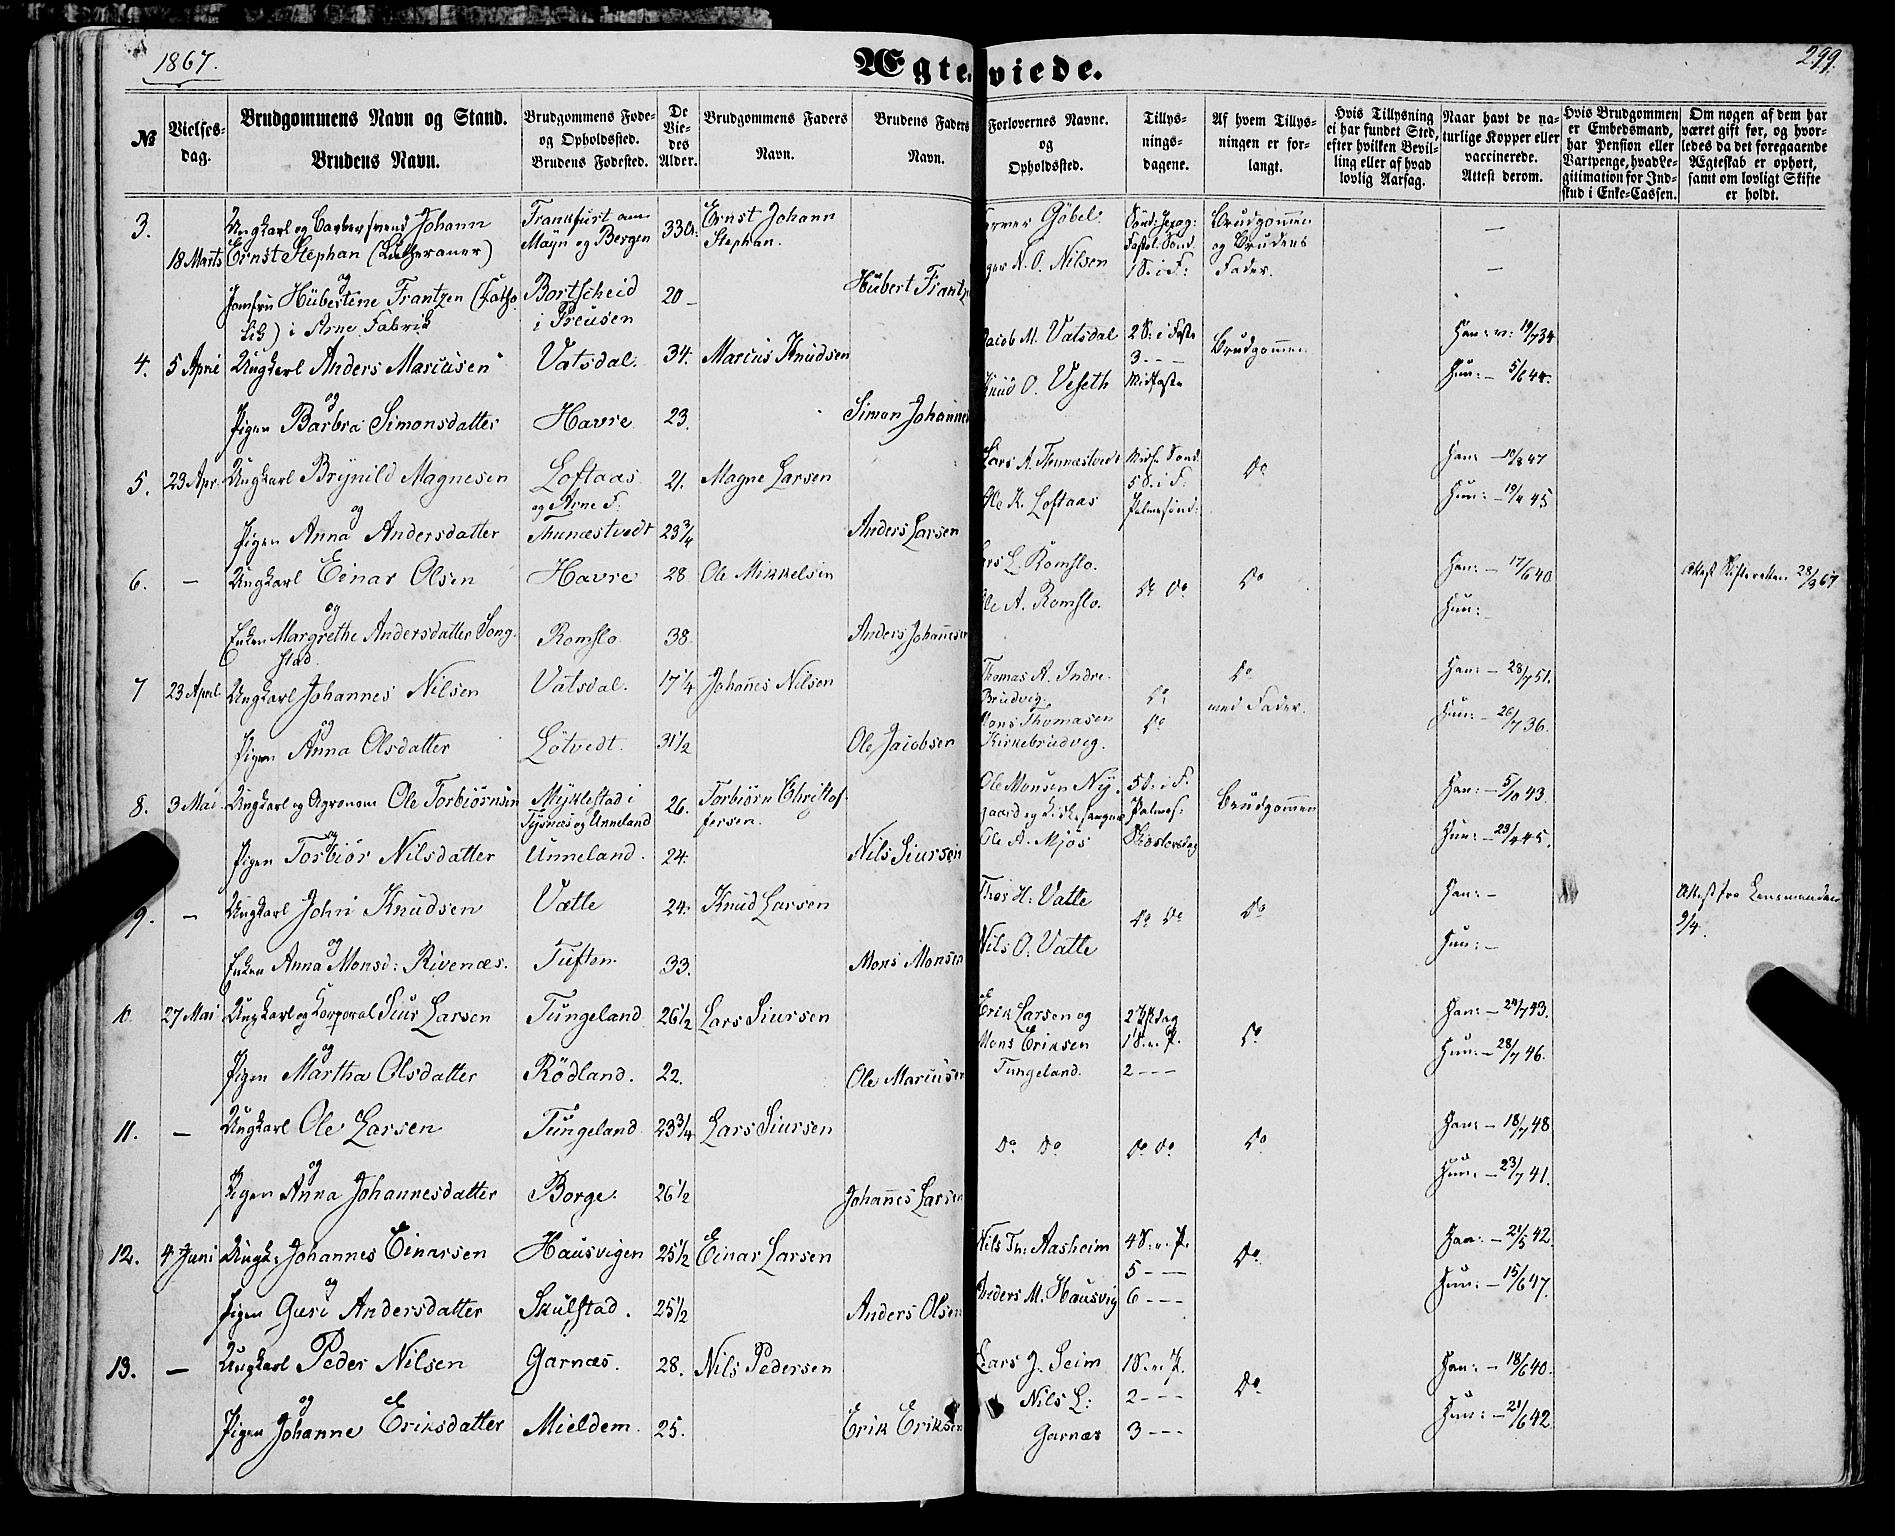 1867.
Ægteviede.
299.
№
Vielses-
dag.
Brudgommens Navn og Stand.
Brudens Navn.
Brudgommens Føde-
og Opholdssted.
Brudens Fødested.
De
Vie-
des
Alder.
Brudgommens Faders
Navn.
Brudens Faders
Navn.
Forlovernes Navne.
og
Opholdssted.
Tillys-
nings-
dagene.
Af hvem Tillys-
ningen er for-
langt.
Hvis Tillysning
ei har fundet Sted,
efter hvilken Bevil-
ling eller af hvad
lovlig Aarsag.
Naar havt de na-
turlige Kopper eller
vaccinerede.
Attest derom.
Hvis Brudgommen
er Embedsmand,
har Pension eller
Vartpenge, hvad Le-
gitimation for Ind-
skud i Enke-Cassen.
Om nogen af dem har
været gift før, og hvor-
ledes da det foregaaende
Ægteskab er ophørt,
samt om lovligt Skifte
er holdt.
3.
18 Marts
Ungkarl og Barbersvend Johann
Ernst Stephan (Lutheraner)
og
Jomfru Hübertine Frantzen (Catho
lik) i Arne Fabrik
Frankfurt am
Mayn og Bergen
Bortscheid
i Preusen
33 a:
20 –
Ernst Johann
Stephan.
Hübert Frantz
Göbel.
N. O. Nilsen
1 S. i F:
Brudgommen
og Brudens
Fader.
–
–
4.
5 April
Ungkarl Anders Mariusen
og
Pigen Barbra Simonsdatter
Vatsdal.
Havre
34.
23.
Marius Knudsen
Simon Johannes
Jacob M. Vatsdal
Knud O. Veseth
2 S: i Faste
3 – – –
Midfaste
Brudgommen
Han: v: 19/7 34
Hun: – 5/6 44.
5.
23 Apr.
Ungkarl Brynild Magnesen
og
Pigen Anna Andersdatter
Loftaas
og Arne F.
Thunæstvedt
21.
23 3/4
Magne Larsen
Anders Larsen
Lars A. Thunæstvedt
Ole K. Loftaas
Midf. Sønd.
5 S. i F.
Palmesønd.
Do
Han: – 10/8 47
Hun: – 19/4 45
6.
–
Ungkarl Einar Olsen
og
Enken Margrethe Andersdatter Song-
stad.
Havre
Romslo
28
38.
Ole Mikkelsen
Anders Johannesen
Lars L. Romslo.
Ole A. Romslo.
Do Do
Do
Han: – 17/6 40
Hun:
Attest Skifteretten 28/3 67
7
23 April
Ungkarl Johannes Nilsen
og
Pigen Anna Olsdatter
Vatsdal.
Lötvedt.
17 1/4
31 1/2
Johannes Nilsen
Ole Jacobsen
Thomas A. Indre
Brudvig.
Mons Thomasen
Kirkebrudvig.
Do
Do
Do
med Fader.
Han: – 28/7 51.
Hun: – 26/7 36.
8.
3 Mai
Ungkarl og Agronom Ole Torbiørnsen
og
Pigen Torbiør Nilsdatter
Myklestad i
Tysnæs og Unneland
Unneland.
26.
24.
Torbiörn Christof-
fersen.
Nils Siursen
Ole Monsen Ny-
gaard og Kirkesanger
Ole A. Mjøs
5 S. i F.
Palmes:
Skjærtorsdag
Brudgommen
Han: – 5/10 43.
Hun: – 23/4 45.
9.
–
Ungkarl John Knudsen
og
Enken Anna Monsd: Rivenæs.
Vatle
Tuften
24.
33.
Knud Larsen
Mons Monsen
Thor H. Vatle
Nils O. Vatle
Do Do
Do
Han: –
Hun: –
Attest fra Lensmanden
9/4.
10.
27 Mai
Ungkarl og Korporal Siur Larsen
og
Pigen Martha Olsdatter
Tungeland
Rödland.
26 1/2
22.
Lars Siursen
Ole Mariusen
Erik Larsen og
Mons Eriksen
Tungeland.
1 S. e. P.
2 – – –
Do
Han: – 24/7 43.
Hun: – 28/7 46.
11.
–
Ungkarl Ole Larsen
og
Pigen Anna Johannesdatter
Tungeland
Borge.
23 3/4
26 1/2
Lars Siursen
Johannes Larsen
Do Do
Do Do
Do
Han: – 18/7 48
Hun: – 23/7 41.
12.
4 Juni
Ungk: Johannes Einarsen
og
Pigen Guri Andersdatter
Hausvigen
Skulstad.
25 1/2
25 1/2
Einar Larsen
Anders Olsen
Nils Th: Aasheim
Anders M. Hausvig
4 S. e. P.
5 – – –
6 – – –
Do
Han: – 21/5 42
Hun: – 15/6 47.
13.
–
Ungkarl Peder Nilsen
og
Pigen Johanne Eriksdatter
Garnæs.
Mieldem.
28.
25.
Nils Pedersen
Erik Eriksen
Lars J. Seim
Nils L:
Garnæs
1 S. e. P.
2 – – –
3 – – –
Do
Han: – 18/6 40.
Hun: – 21/6 42.